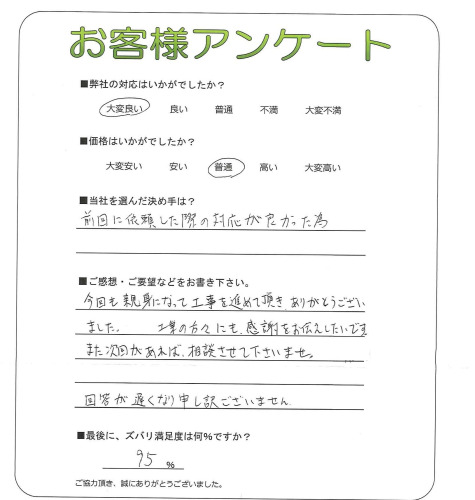 お客様アンケート
■弊社の対応はいかがでしたか？
大変良い 良い 普通 不満 大変不満
■価格はいかがでしたか？
大変安い 安い 普通 高い 大変高い
■当社を選んだ決め手は？
前回に依頼した際の対応が良かった為
■ご感想・ご要望などをお書き下さい。
今回も親身になって工事を進めて頂き、ありがとうござい
ました。 工業の方々にも、感謝をお伝えしたいです
また次回があれば、相談させて下さいませ。
回答が遅くなり申し訳ございません
■最後に、ズバリ満足度は何％ですか？
95 %
ご協力頂き、誠にありがとうございました。